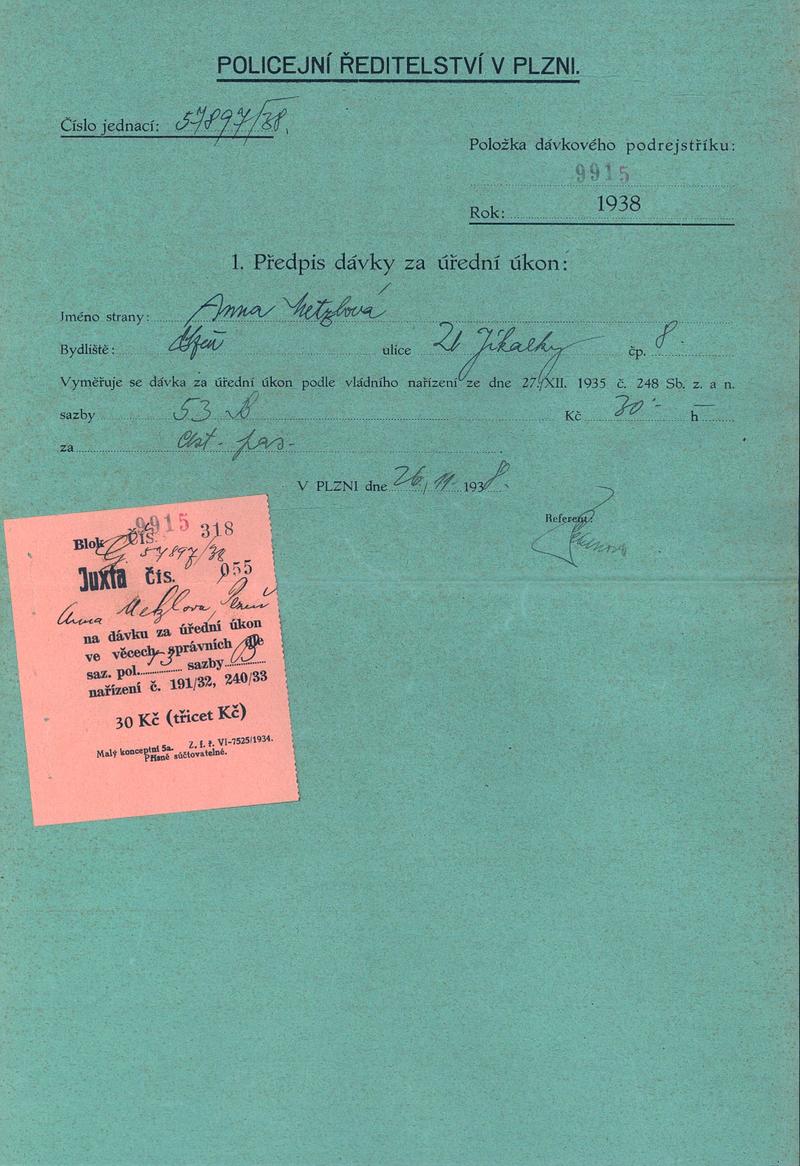 POLICEJNÍ ŘEDITELSTVÍ V PLZNI.
Číslo jednací: 57897/38.
Položka dávkového podrejstříku:
9915
Rok: 1938
1. Předpis dávky za úřední úkon:
Jméno strany: Anna Metzlová
Bydliště: Plzeň ulice U Jíkalky čp. 8.
Vyměřuje se dávka za úřední úkon podle vládního nařízení ze dne 27./XII. 1935 č. 248 Sb. z. a n.
sazby 53 B Kč 30·- h —
za cest. pas-
V PLZNI dne 26/11. 1938.
Referent:
9915
Blok čís. 318
57897/38
Juxta čís. 055
Anna Metzlova, Plzeň
na dávku za úřední úkon
ve věcech správních dle
saz. pol. 53 sazby B
nařízení č. 191/32, 240/33
30 Kč (třicet Kč)
Malý konceptní 5a. Z. f. ř. VI-7525/1934.
Přísně súčtovatelné.